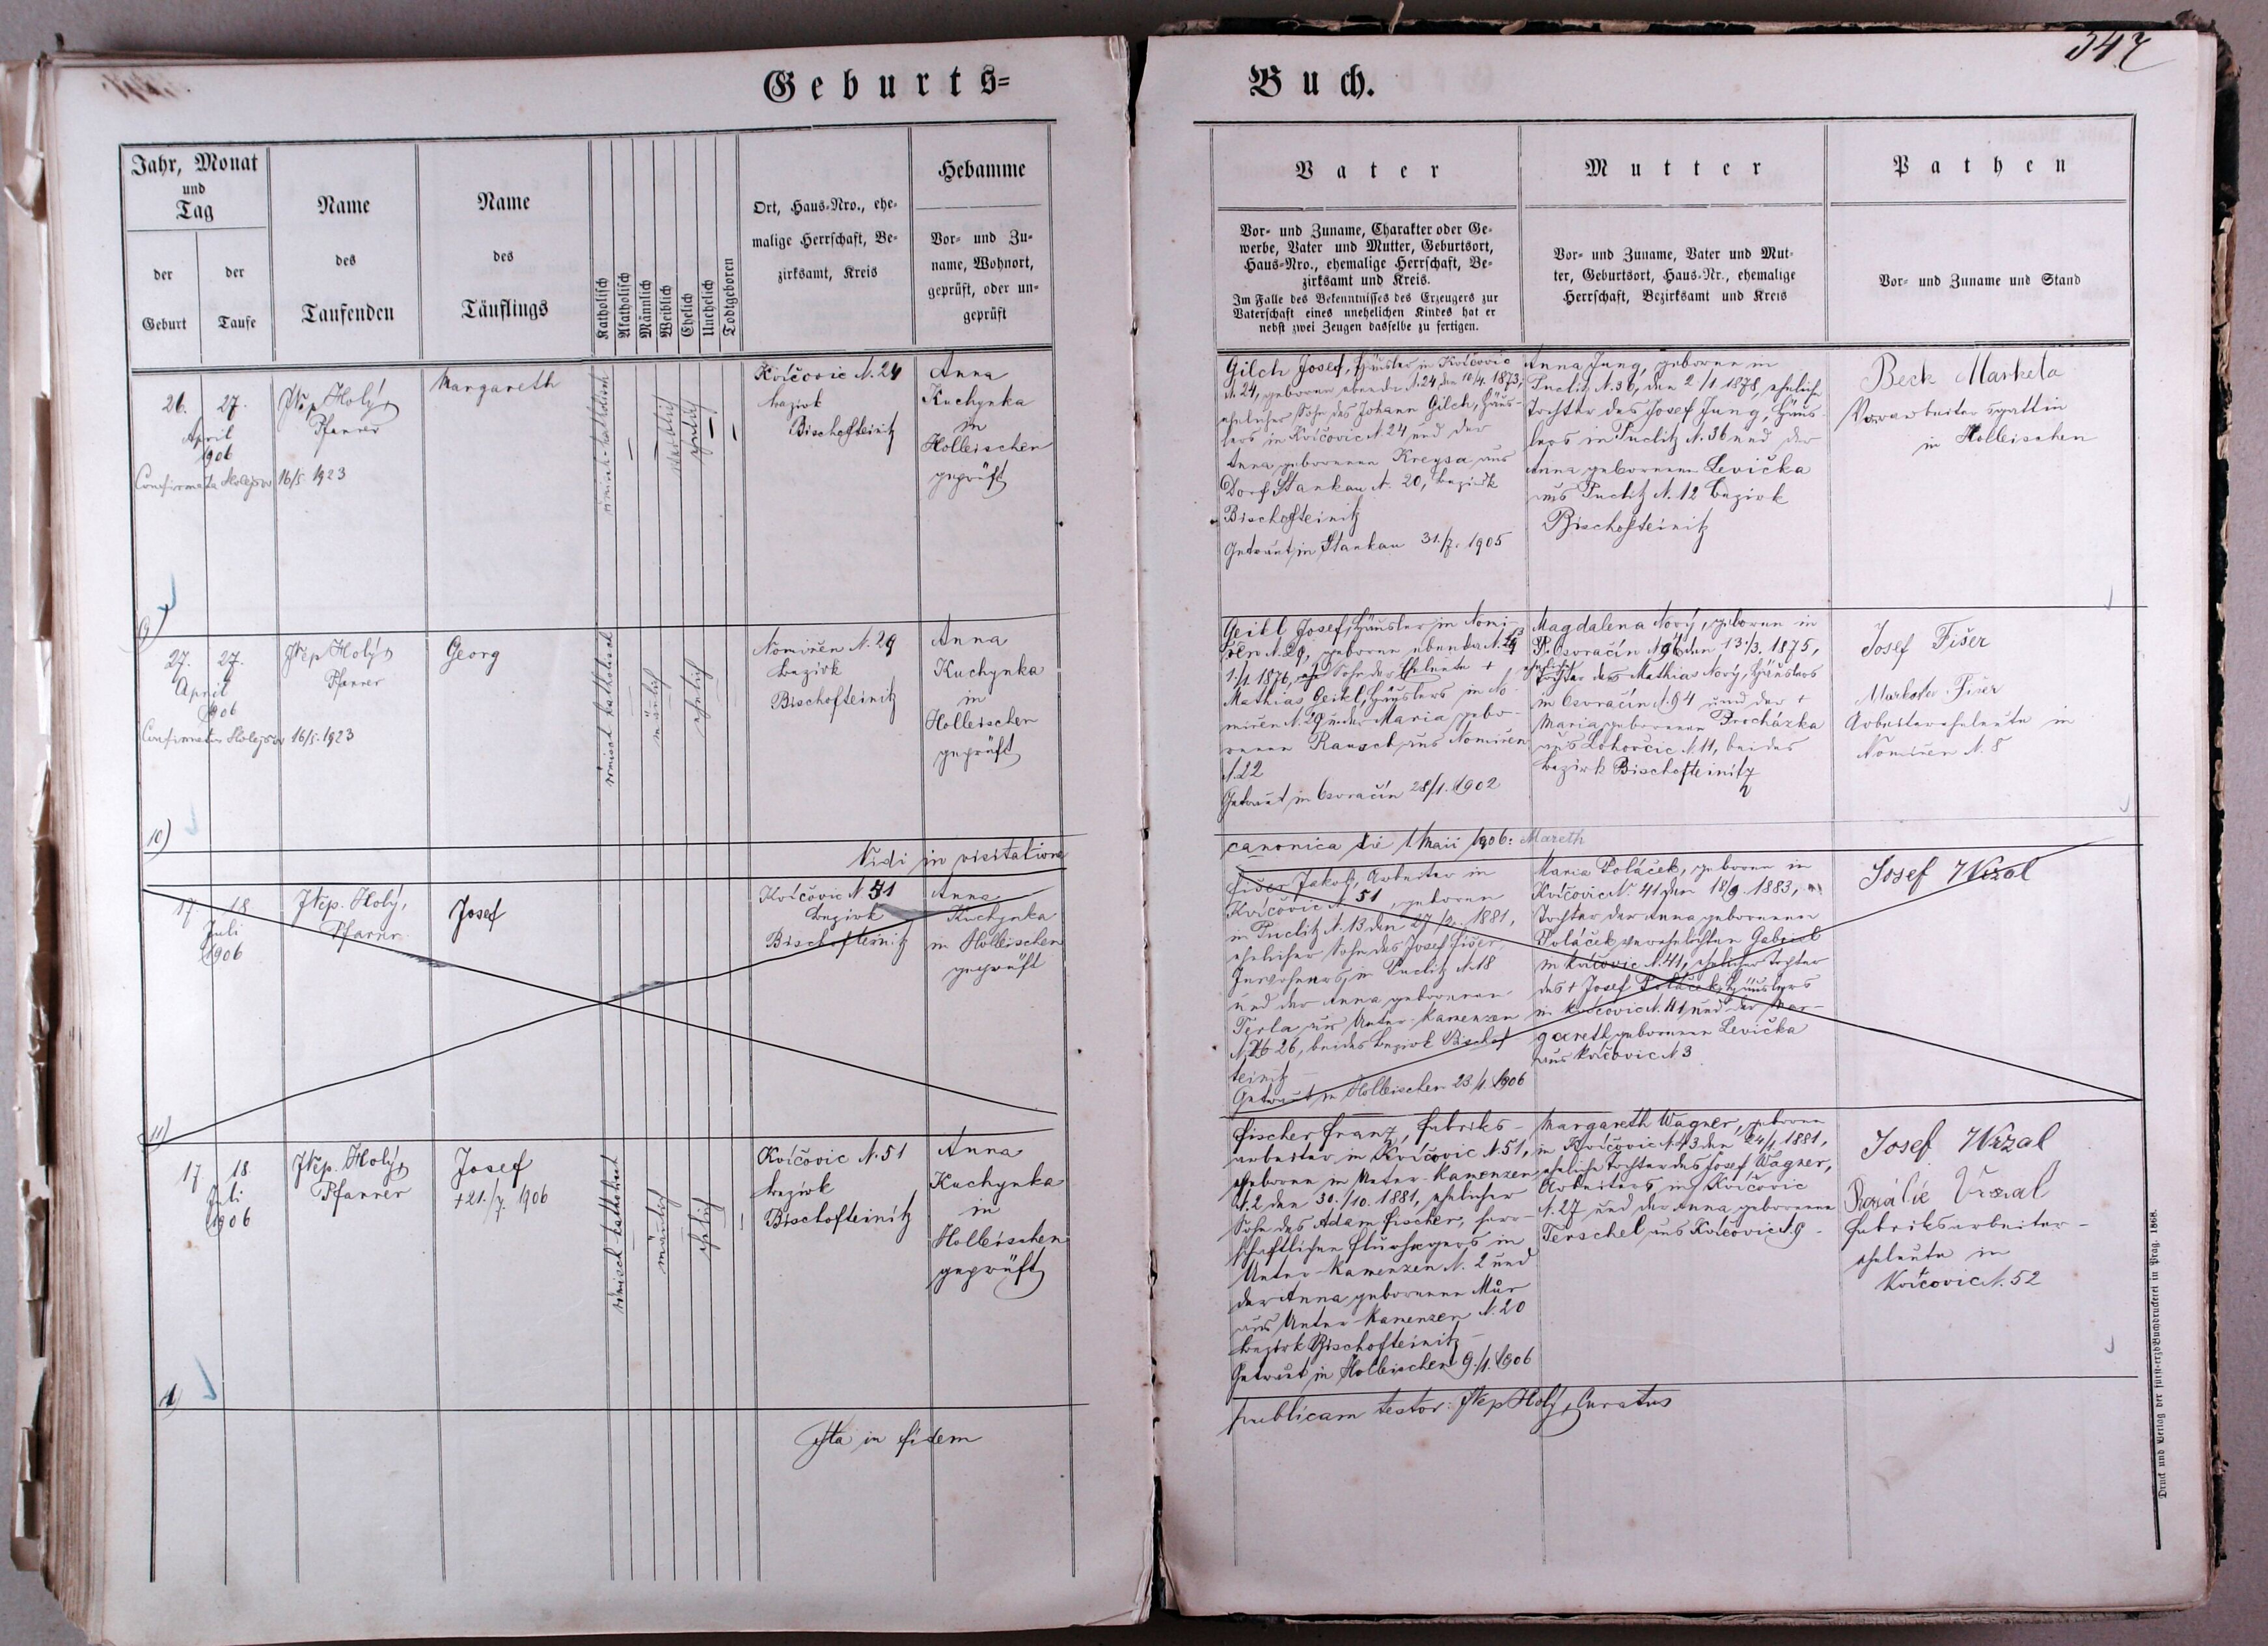 547
Geburts=
Buch.
Jahr, Monat
und
Tag
der
Geburt
der
Taufe
Name
des
Taufenden
Name
des
Täuflings
Katholisch
Akatholisch
Männlich
Weiblich
Ehelich
Unehelich
Todtgeboren
Ort, Haus=Nro., ehe=
malige Herrschaft, Be=
zirksamt, Kreis
Hebamme
Vor= und Zu=
name, Wohnort,
geprüft, oder un=
geprüft
Vater
Vor= und Zuname, Charakter oder Ge=
werbe, Vater und Mutter, Geburtsort,
Haus=Nro., ehemalige Herrschaft, Be=
zirksamt und Kreis.
Im Falle des Bekenntnisses des Erzeugers zur
Vaterschaft eines unehelichen Kindes hat er
nebst zwei Zeugen dasselbe zu fertigen.
Mutter
Vor= und Zuname, Vater und Mut=
ter, Geburtsort, Haus=Nr., ehemalige
Herrschaft, Bezirksamt und Kreis
Pathen
Vor= und Zuname und Stand
26. 27.
April
906
JNep Holý,
Pfarrer
16/5. 1923
Margareth
römisch-katholisch
weiblich
ehelich
Kvíčovic N. 24
bezirk
Bischofteinitz
Anna
Kuchynka
in
Holleischen
geprüft
Gilch Josef, Häusler in Kvíčovic
N 24, geboren ebenda N. 24, den 10/4. 1873,
ehelicher Sohn des Johann Gilch, Häus-
lers in Kvíčovic N. 24 und der
Anna geborenen Kreysa aus
Dorf Stankau N. 20, bezirk
Bischofteinitz
Getraut in Stankau 31./7. 1905
Anna Jung, geboren in
Puclitz N. 36, den 2/1 1878, eheliche
Tochter des Josef Jung, Häus-
lers in Puclitz N. 36 und der
Anna geborenen Levička
aus Puclitz N. 12 bezirk
Bischofteinitz
Beck Marketa
Vorarbeitersgattin
in Holleischen
9)
27. 27.
April
906
JNep Holý,
Pfarrer
16/5. 1923
Georg
römisch katholisch
mänlich
ehelich
Nomiřen N. 29
bezirk
Bischofteinitz
Anna
Kuchynka
in
Holleischen
geprüft
Geikl Josef, Häusler in Nomi-
řen N. 29, geboren ebenda
1./1. 1876, Sohn der Eheleute +
Mathias Geikl, Häuslers in No-
miřen N. 29 und Maria gebo-
renen Rausch aus Nomiřen
N. 22
Getraut in Osvračín 28/1. 1902
Magdalena Nový, geboren in
Osvračín den 13/3. 1875,
Tochter des Mathias Nový, Häuslers
in Osvračín N. 94 und der +
Maria geborenen Procházka
aus Lohovčic N. 11, beides
bezirk Bischofteinitz
Josef Fišer
Marketa Fišer
Arbeiterseheleute in
Nomiřen N. 8
10)
Vidi in visitatione
canonica die 1 Maii 1906: Mareth
17. 18.
Juli
1906
JNep. Holý,
Pfarrer
Josef
Kvíčovic N. 51
bezirk
Bischofteinitz
Anna
Kuchynka
in Holleischen
geprüft
Fišer Jakob, Arbeiter in
Kvíčovic N. 51, geboren
in Puclitz N. 13 den 27/2. 1881,
ehelicher Sohn des Josef Fišer,
Inwohners in Puclitz N. 18
und der Anna geborenen
Terla aus Unter-Kamenzen
26, beides bezirk Bischof-
teinitz
Getraut in Holleischen 23./1. 1906
Maria Poláček, geboren in
Kvíčovic N. 41 den 18/9 1883,
Tochter der Anna geborenen
Poláček verehelichten Gabriel
in Kvíčovic N. 41, ehelicher Tochter
des + Josef Poláček, Häuslers
in Kvíčovic N. 41 und der Mar-
gareth geborenen Levička
aus Kvíčovic N 3
Josef Wrzal
11)
17. 18.
Juli
1906
JNep. Holý,
Pfarrer
Josef
+ 21./7. 1906
römisch katholisch
mänlich
ehelich
Kvíčovic N. 51
bezirk
Bischofteinitz
Anna
Kuchynka
in
Holleischen
geprüft
Fischer Franz, Fabriks-
arbeiter in Kvíčovic N. 51,
geboren in Unter-Kamenzen
N. 2 den 30./10. 1881, ehelicher
Sohn des Adam Fischer, herr-
schaftlichen Flurhegers in
Unter-Kamenzen N. 2 und
der Anna geborenen Můr
aus Unter-Kamenzen N. 20
bezirk Bischofteinitz
Getraut in Holleischen 9./1. 1906
Margareth Wagner, geboren
in Kvíčovic N. 43 den 24/1 1881,
eheliche Tochter des Josef Wagner,
Arbeiters in Kvíčovic
N. 27 und der Anna geborenen
Terschel aus Kvíčovic N. 9
Josef Wrzal
Rozálie Vrzal
Fabriksarbeiter-
eheleute in
Kvíčovic N. 52
Ita in fidem
publicam testor: JNep Holý, Curatus
Druck und Verlag der fürst=erzb Buchdruckerei in Prag. 1868.